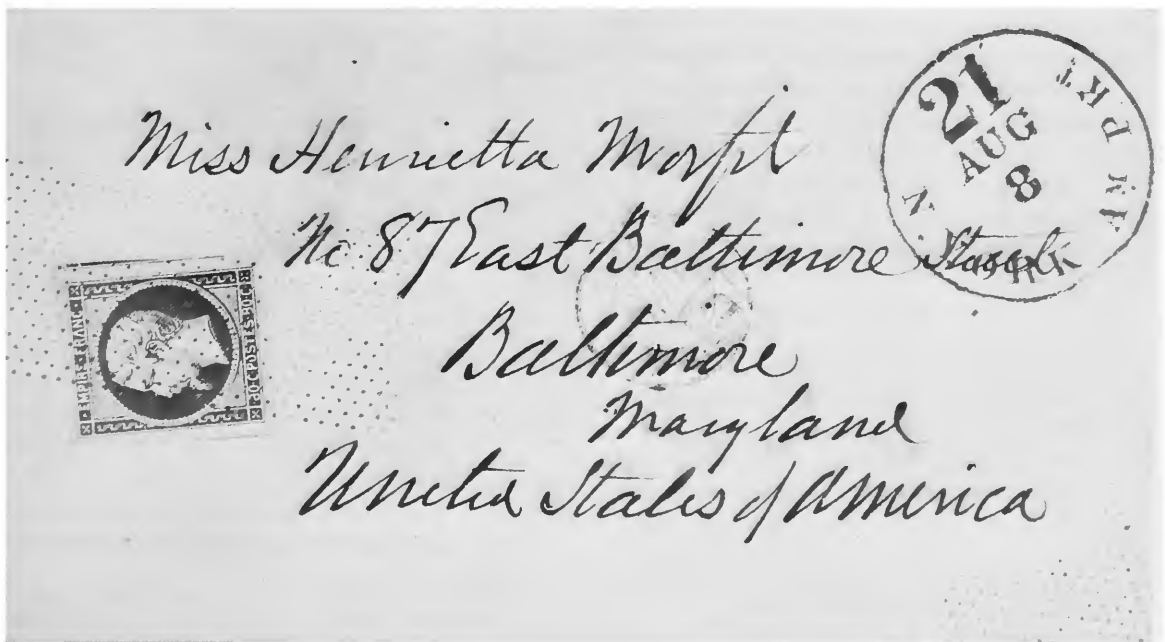 Miss Henrietta Morfit
No 87 East Baltimore Street
Baltimore
Maryland
United States of America
21
AUG
8
N. YORK AM PKT
EMPIRE FRANC
80 C POSTES 80 C